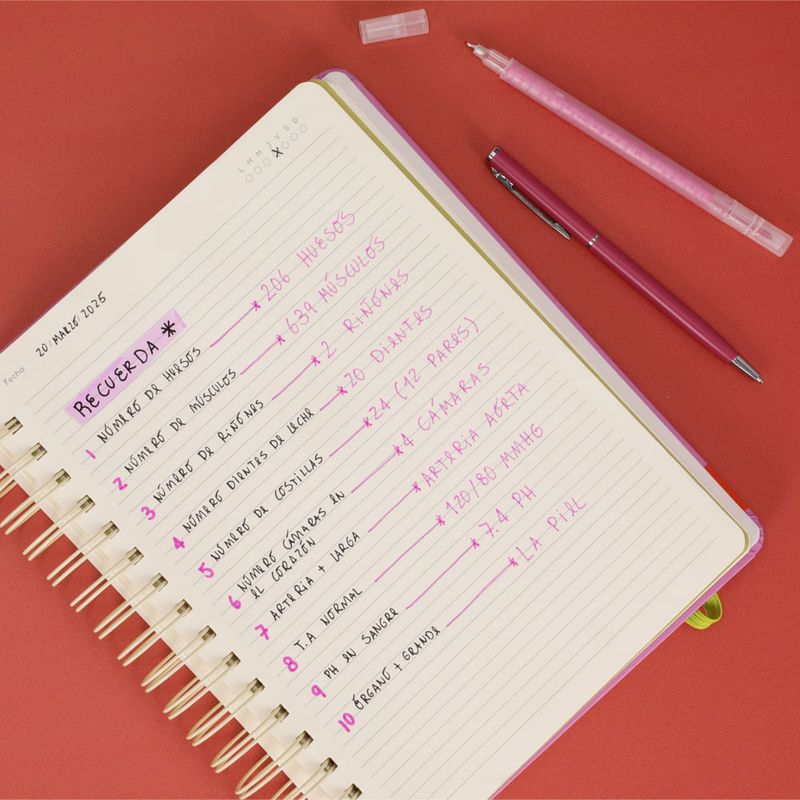 L M M J V S D
X
Fecha 20/MARZO/2025
RECUERDA *
1 NÚMERO DE HUESOS * 206 HUESOS
2 NÚMERO DE MÚSCULOS * 639 MÚSCULOS
3 NÚMERO DE RIÑONES * 2 RIÑONES
4 NÚMERO DIENTES DE LECHE * 20 DIENTES
5 NÚMERO DE COSTILLAS * 24 (12 PARES)
6 NÚMERO CÁMARAS EN * 4 CÁMARAS
EL CORAZÓN
7 ARTERIA + LARGA * ARTERIA AORTA
8 T.A NORMAL * 120/80 MMHG
9 PH EN SANGRE * 7.4 PH
10 ÓRGANO + GRANDE * LA PIEL